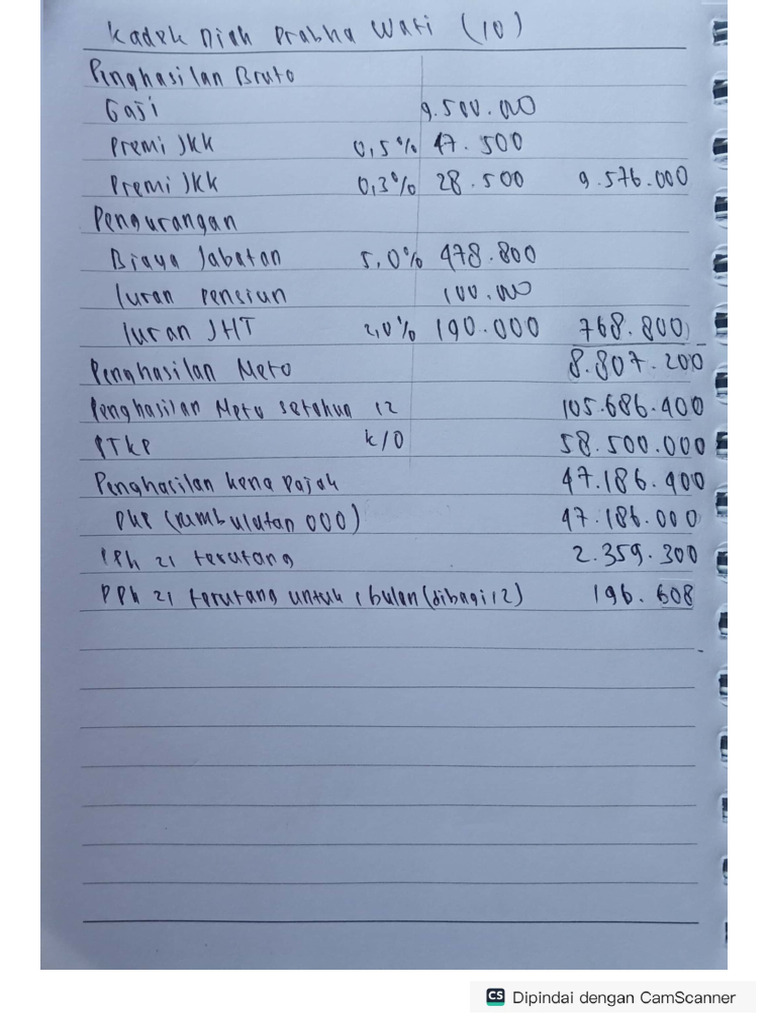 Kadek Diah Prabha Wati (10)
Penghasilan Bruto
Gaji 9.500.000
Premi JKK 0,5% 47.500
Premi JKK 0,3% 28.500 9.576.000
Pengurangan
Biaya Jabatan 5,0% 478.800
Iuran pensiun 100.000
Iuran JHT 2,0% 190.000 768.800
Penghasilan Neto 8.807.200
Penghasilan Neto setahun 12 105.686.400
PTKP K/0 58.500.000
Penghasilan kena pajak 47.186.400
PKP (pembulatan 000) 47.186.000
PPh 21 terutang 2.359.300
PPh 21 terutang untuk 1 bulan (dibagi 12) 196.608
CS Dipindai dengan CamScanner